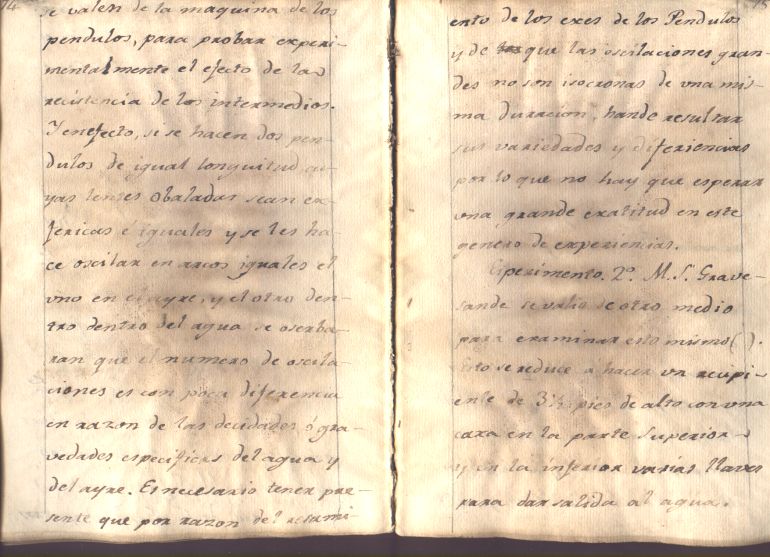 74
se valen de la maquina de los
pendulos, para probar experi-
mentalmente el efecto de la
recistencia de los intermedios.
Y enefecto, si se hacen dos pen-
dulos de igual longuitud cu-
yas lentes Obaladas sean es-
fericas é iguales y se les ha-
ce oscilar en arcos iguales el
vno en el ayre, y el otro den-
tro dentro del agua se oserba-
ran que el numero de oscila-
ciones es con poca diferencia
en razon de las decidades ó gra-
vedades especificas del agua y
del ayre. Es necesario tener pre-
sente que por razon del
75
ento de los exes de los Pendulos
y de que las oscilaciones gran-
des no son isocronas de vna mis-
ma duracion, hande resultar
sus variedades y diferiencias
por lo que no hay que esperar
vna grande exatitud en este
genero de experiencias.
Esperimento. 2º. M. S. Grave-
sande se valio de otro medio
para examinar esto mismo ( ).
Esto se reduce a hacer un recipi-
ente de 3½ pies de alto con vna
caxa en la parte Superior
y en la inferior varias llaves
para dar salida al agua.